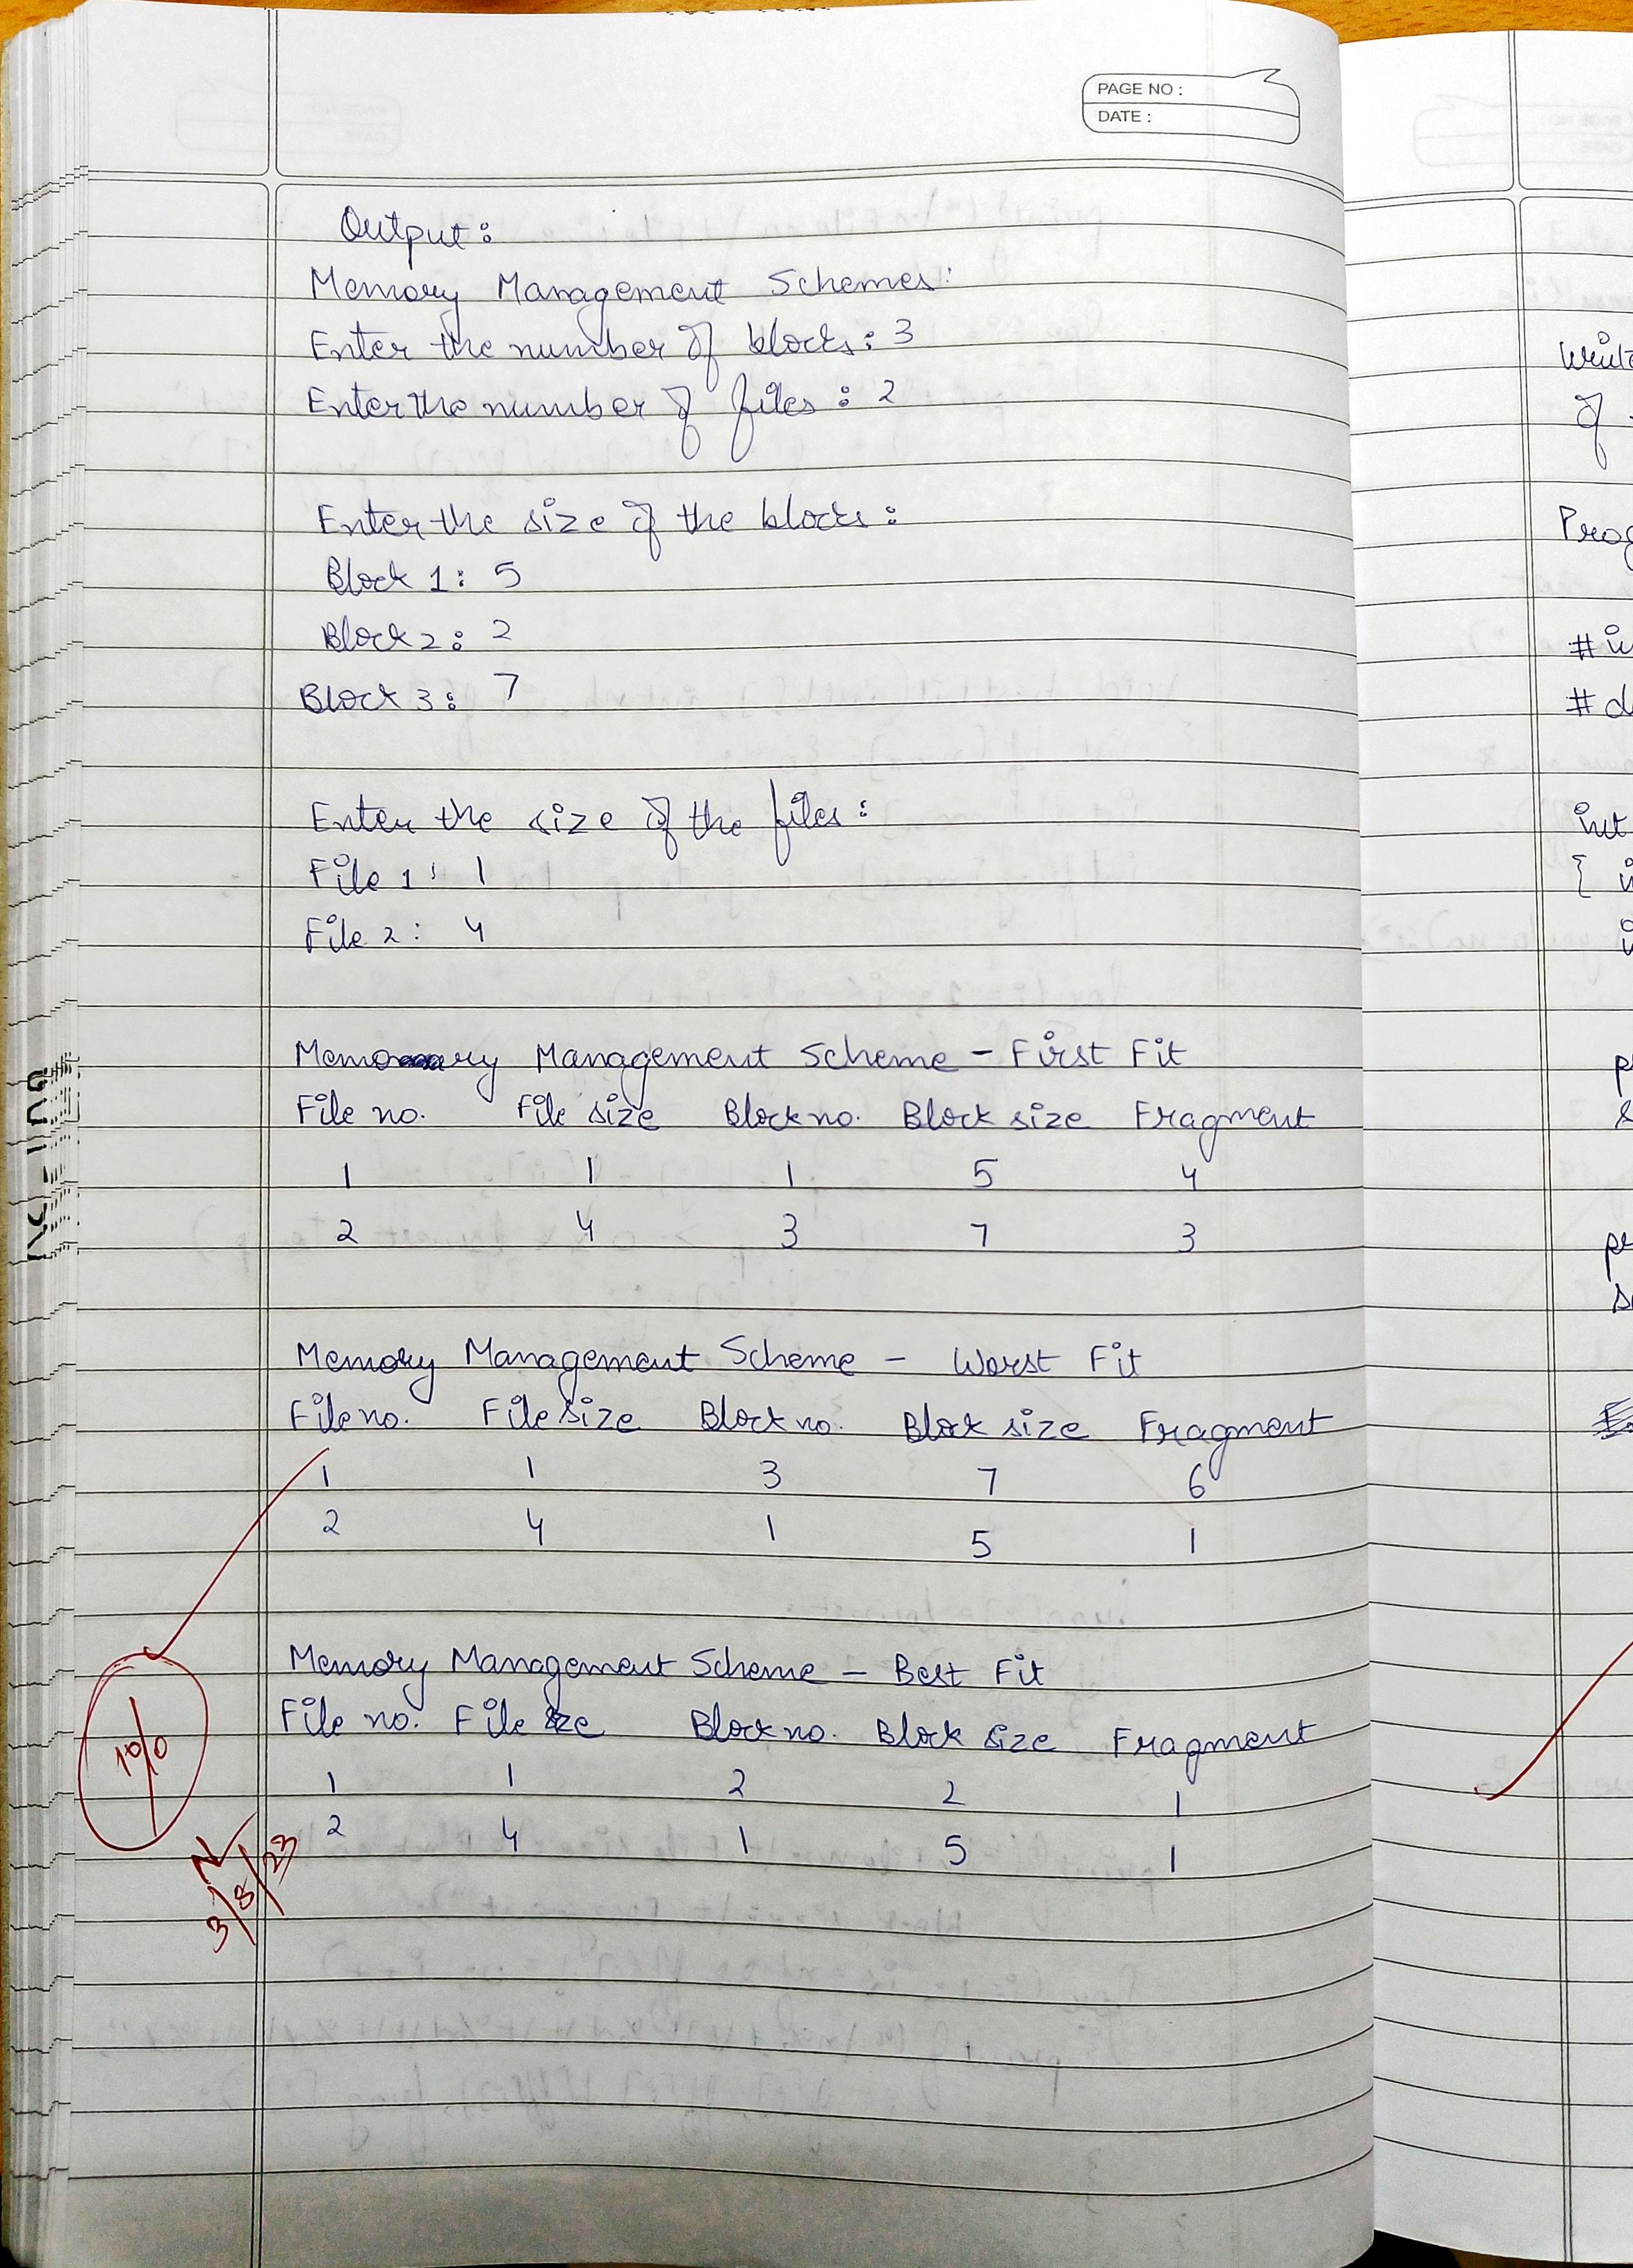 PAGE NO :
DATE :
Output :
Memory Management Schemes:
Enter the number of blocks : 3
Enter the number of files : 2
Enter the size of the blocks :
Block 1 : 5
Block 2 : 2
Block 3 : 7
Enter the size of the files :
File 1 : 1
File 2 : 4
Memory Management Scheme - First Fit
File no. File size Block no. Block size Fragment
1 1 1 5 4
2 4 3 7 3
Memory Management Scheme - Worst Fit
File no. File size Block no. Block size Fragment
1 1 3 7 6
2 4 1 5 1
Memory Management Scheme - Best Fit
File no. File size Block no. Block size Fragment
1 1 2 2 1
2 4 1 5 1
10/10
3/8/23
of
int
{